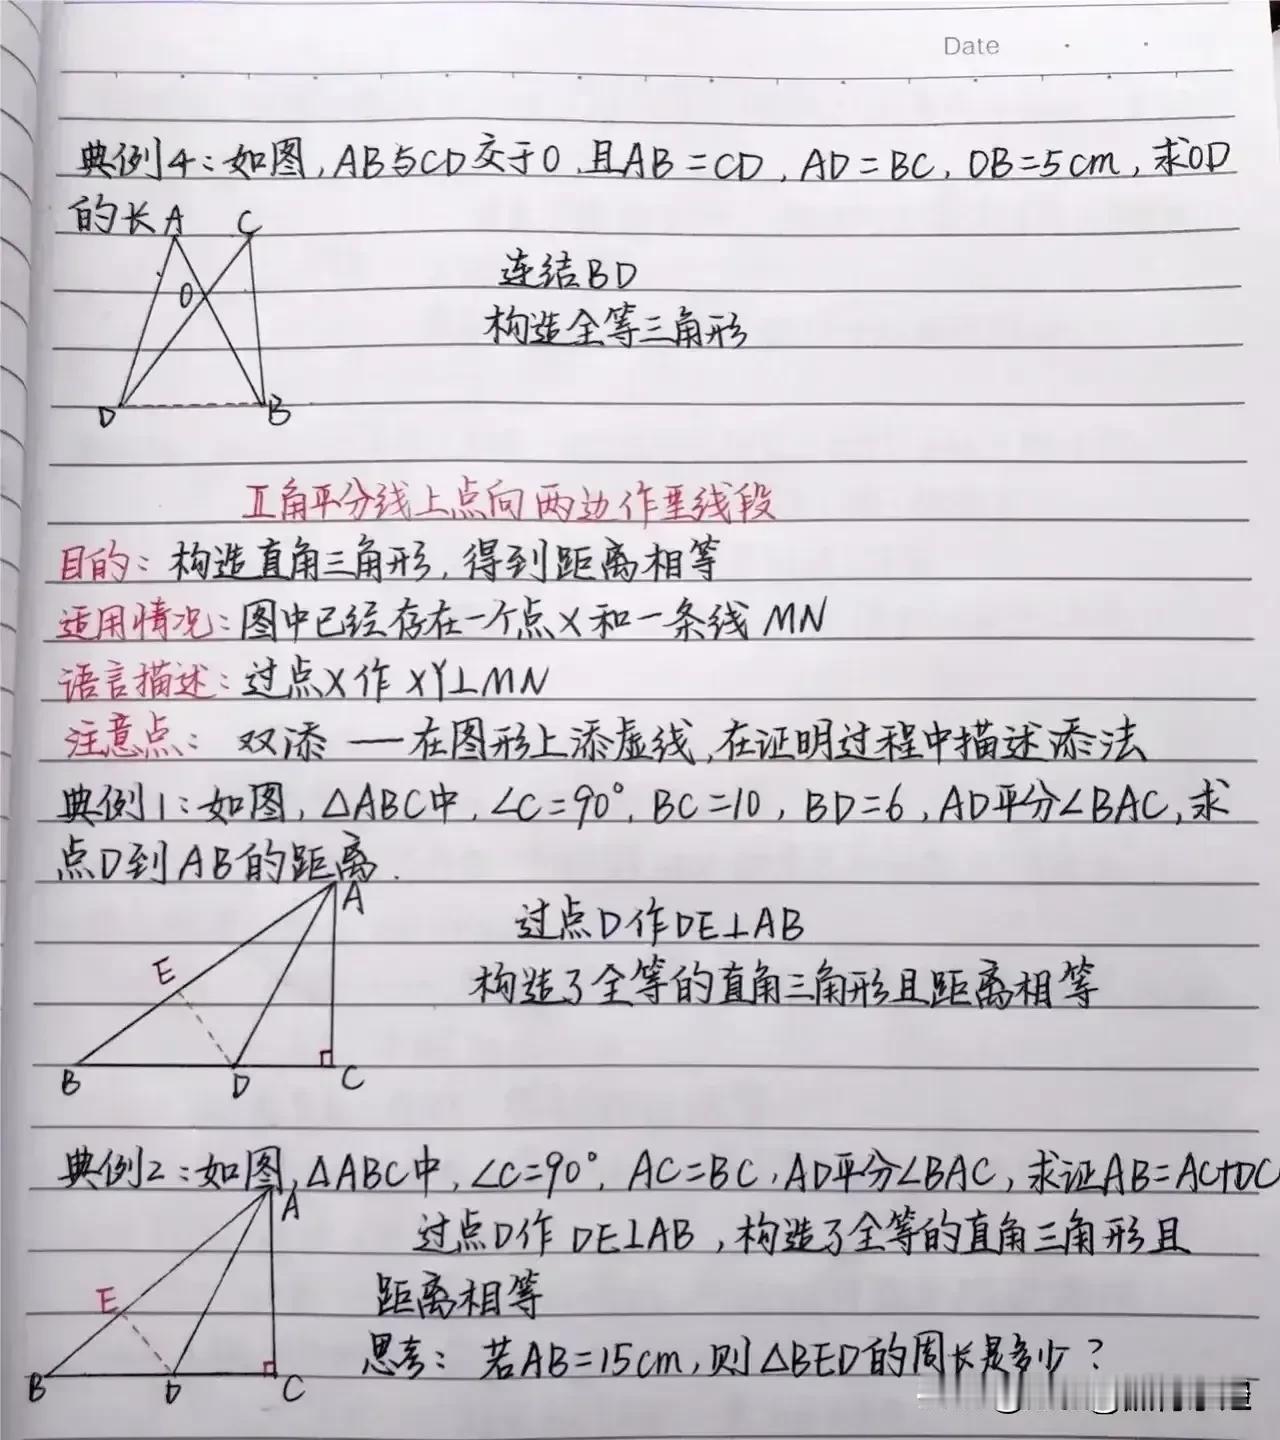 Date
典例4:如图,AB与CD交于O,且AB=CD,AD=BC,OB=5cm,求OD
的长
A C
连结BD
O
构造全等三角形
D B
Ⅱ角平分线上点向两边作垂线段
目的:构造直角三角形,得到距离相等
适用情况:图中已经存在一个点X和一条线MN
语言描述:过点X作XY⊥MN
注意点:双添——在图形上添虚线,在证明过程中描述添法
典例1:如图,△ABC中,∠C=90°,BC=10,BD=6,AD平分∠BAC,求
点D到AB的距离.
A
过点D作DE⊥AB
E
构造了全等的直角三角形且距离相等
B D C
典例2:如图,△ABC中,∠C=90°,AC=BC,AD平分∠BAC,求证AB=AC+DC
A
过点D作DE⊥AB,构造了全等的直角三角形且
E
距离相等
思考:若AB=15cm,则△BED的周长是多少?
B D C